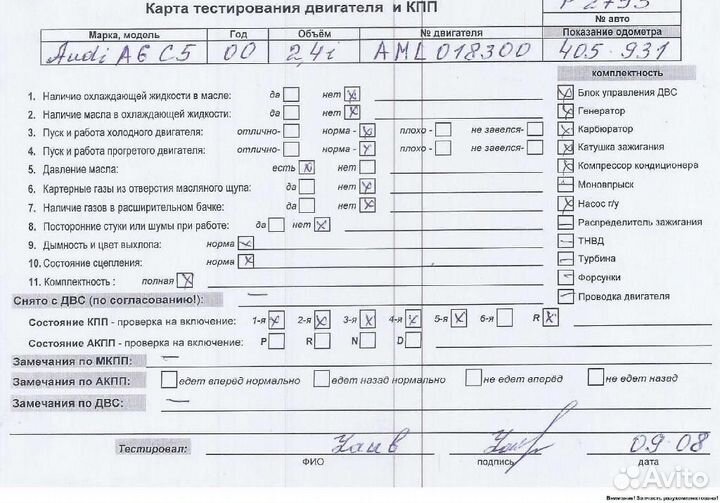 Карта тестирования двигателя и КПП
Р2795
№ авто
Марка, модель Год Объём № двигателя Показание одометра
Audi A6 C5 00 2,4i AML 018300 405.931
комплектность
1. Наличие охлаждающей жидкости в масле: да нет
2. Наличие масла в охлаждающей жидкости: да нет
3. Пуск и работа холодного двигателя: отлично- норма - плохо - не завелся-
4. Пуск и работа прогретого двигателя: отлично- норма - плохо - не завелся-
5. Давление масла: есть нет
6. Картерные газы из отверстия масляного щупа: да нет
7. Наличие газов в расширительном бачке: да нет
8. Посторонние стуки или шумы при работе: да нет
9. Дымность и цвет выхлопа: норма
10. Состояние сцепления: норма
11. Комплектность : полная
Блок управления ДВС
Генератор
Карбюратор
Катушка зажигания
Компрессор кондиционера
Моновпрыск
Насос г/у
Распределитель зажигания
ТНВД
Турбина
Форсунки
Проводка двигателя
Снято с ДВС (по согласованию!): —
Состояние КПП - проверка на включение: 1-я 2-я 3-я 4-я 5-я 6-я R
Состояние АКПП - проверка на включение: P R N D
Замечания по МКПП: —
Замечания по АКПП: едет вперёд нормально едет назад нормально не едет вперёд не едет назад
Замечания по ДВС: —
Тестировал: 09.08
ФИО подпись дата
Avito
Внимание! Запчасть разукомплектована!